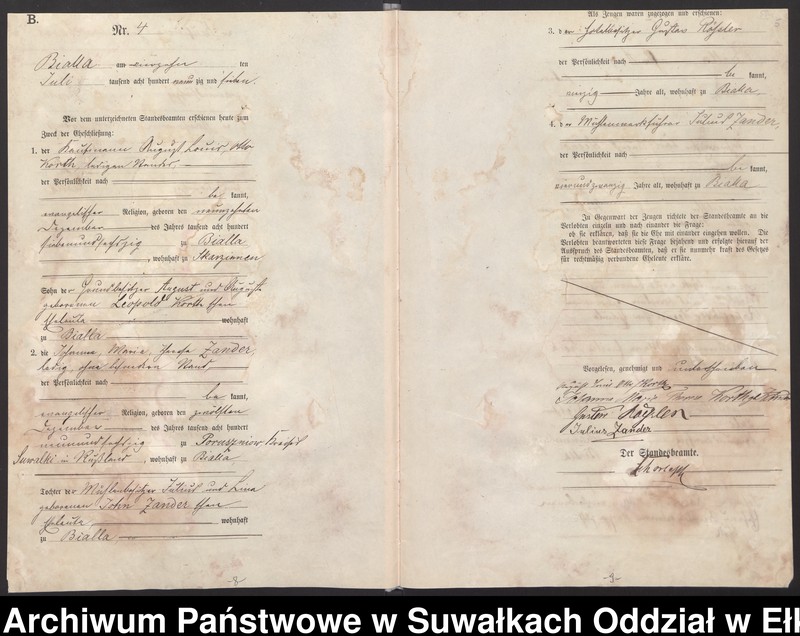 B.
Nr. 4
Bialla am vierzehn ten
Juli tausend acht hundert neun zig und sieben.
Vor dem unterzeichneten Standesbeamten erschienen heute zum
Zweck der Eheschließung:
1. der Kaufmann August Louis Otto
Korth, ledigen Standes,
der Persönlichkeit nach
be kannt,
evangelischer Religion, geboren den neunzehnten
Dezember des Jahres tausend acht hundert
siebenundsechzig zu Bialla
, wohnhaft zu
Sohn der Grundbesitzer August und Auguste
geborenen Leopold Korthschen
Eheleute wohnhaft
zu Bialla
2. die Johanna Marie Zander,
ledig, ohne besonderen Stand
der Persönlichkeit nach
be kannt,
evangelischer Religion, geboren den zwölften
Dezember des Jahres tausend acht hundert
neunundsechzig zu
Suwalki in Rußland, wohnhaft zu Bialla
Tochter der Mühlenbesitzer Julius und Lina
geborenen John Zanderschen
Eheleute wohnhaft
zu Bialla
-8-
Als Zeugen waren zugezogen und erschienen:
3. der Hotelbesitzer Gustav Rößler
der Persönlichkeit nach
be kannt,
Jahre alt, wohnhaft zu Bialla
4. der Mühlenwerkführer Julius Zander,
der Persönlichkeit nach
be kannt,
Jahre alt, wohnhaft zu Bialla
In Gegenwart der Zeugen richtete der Standesbeamte an die
Verlobten einzeln und nach einander die Frage:
ob sie erklären, daß sie die Ehe mit einander eingehen wollen. Die
Verlobten beantworteten diese Frage bejahend und erfolgte hierauf der
Ausspruch des Standesbeamten, daß er sie nunmehr kraft des Gesetzes
für rechtmäßig verbundene Eheleute erkläre.
Vorgelesen, genehmigt und unterschrieben
Louis Otto Korth
Johanna Marie Korth geb. Zander
Gustav Rößler
Julius Zander
Der Standesbeamte.
-9-
Archiwum Państwowe w Suwałkach Oddział w Ełk